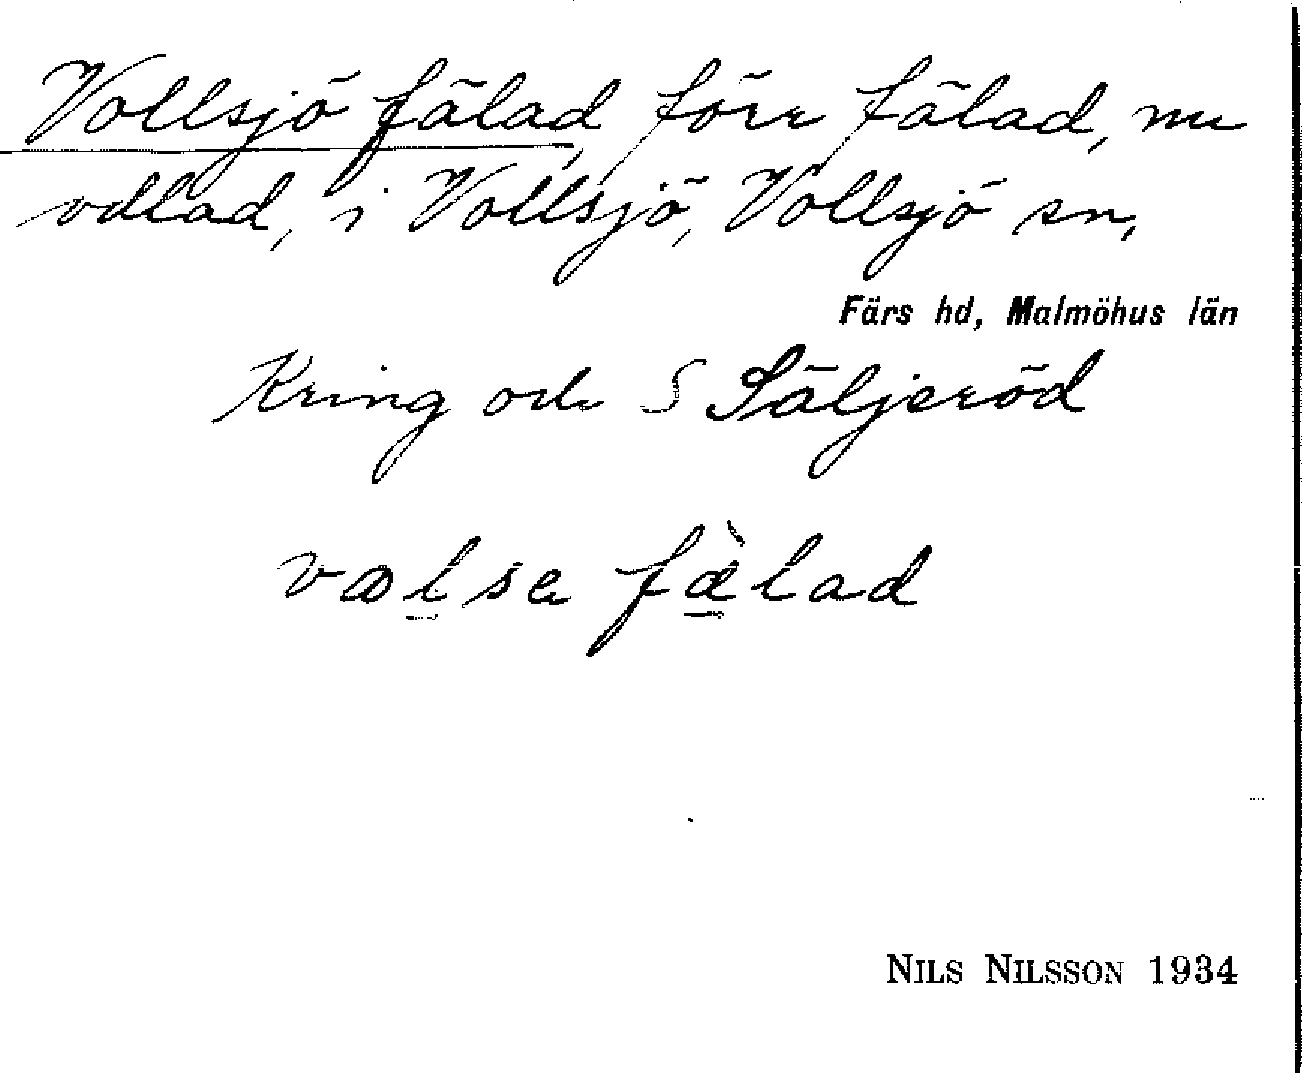 Vollsjö fälad, förr fälad, nu
odlad, i Vollsjö, Vollsjö sn,
Färs hd, Malmöhus län
Kring och S Säljeröd
vaolsa fæ̀lad
NILS NILSSON 1934